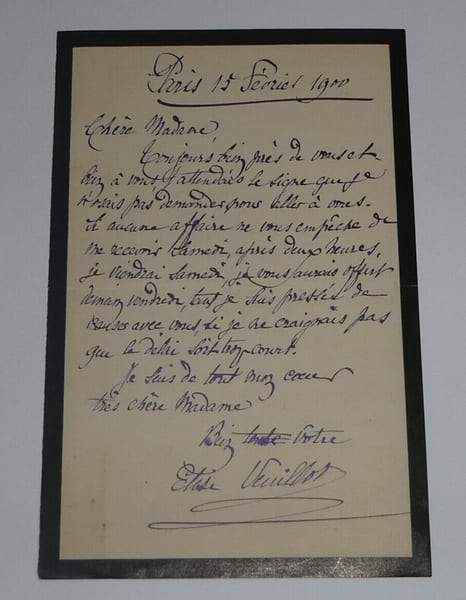 Paris 15 Février 1900
Chère Madame,
Toujours bien près de vous et
bien à vous j'attendais le signe que je
n'osais pas demander pour aller à vous.
Si aucune affaire ne vous empêche de
me recevoir Samedi, après deux heures,
je viendrai Samedi, je vous aurais offert
demain vendredi, tant je suis pressée de
causer avec vous si je ne craignais pas
que le délai soit trop court.
Je suis de tout mon cœur
très chère Madame
Bien toute votre
Elise Veuillot